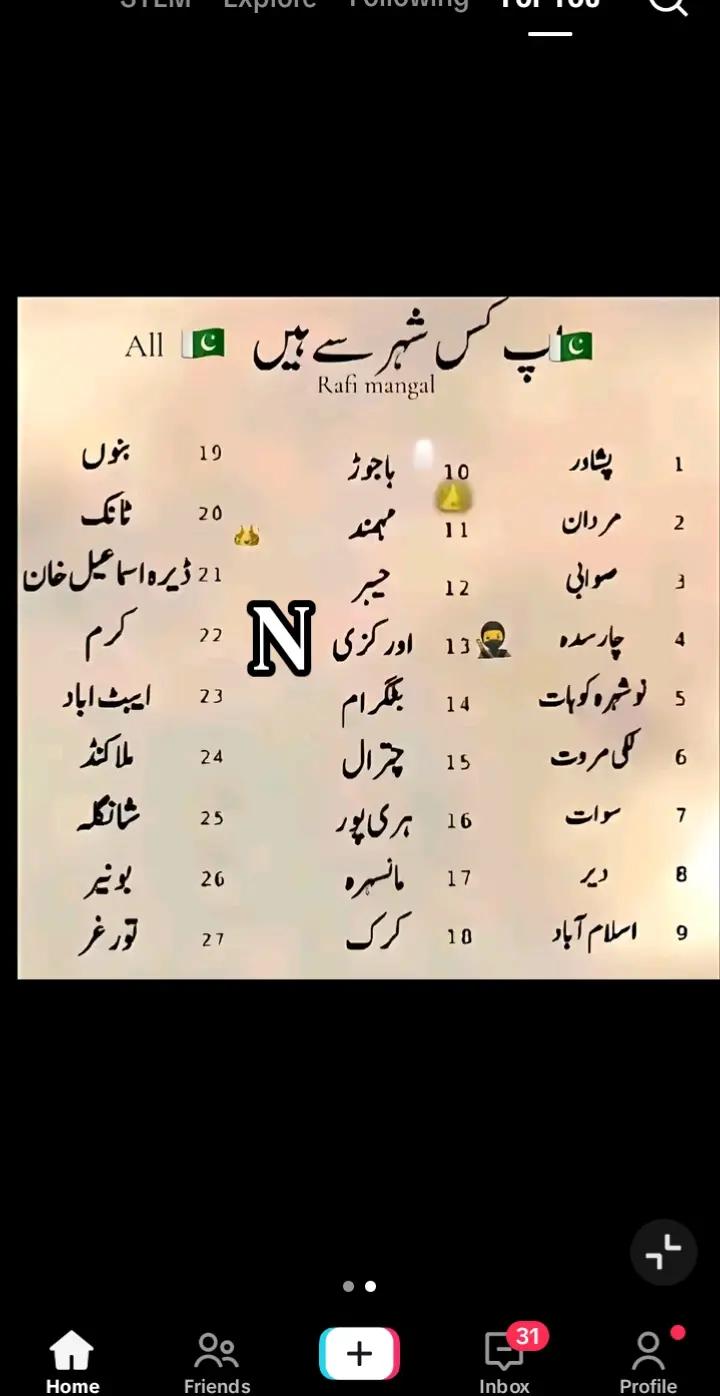 STEM Explore Following For You
آپ کس شہر سے ہیں All
Rafi mangal
1 پشاور
2 مردان
3 صوابی
4 چارسدہ
5 نوشہرہ کوہات
6 لکی مروت
7 سوات
8 دیر
9 اسلام آباد
10 باجوڑ
11 مہمند
12 خیبر
13 اورکزی
14 بٹگرام
15 چترال
16 ہری پور
17 مانسہرہ
18 کرک
19 بنوں
20 ٹانک
21 ڈیرہ اسماعیل خان
22 کرم
23 ایبٹ اباد
24 ملاکنڈ
25 شانگلہ
26 بونیر
27 تورغر
N
31
Home Friends Inbox Profile